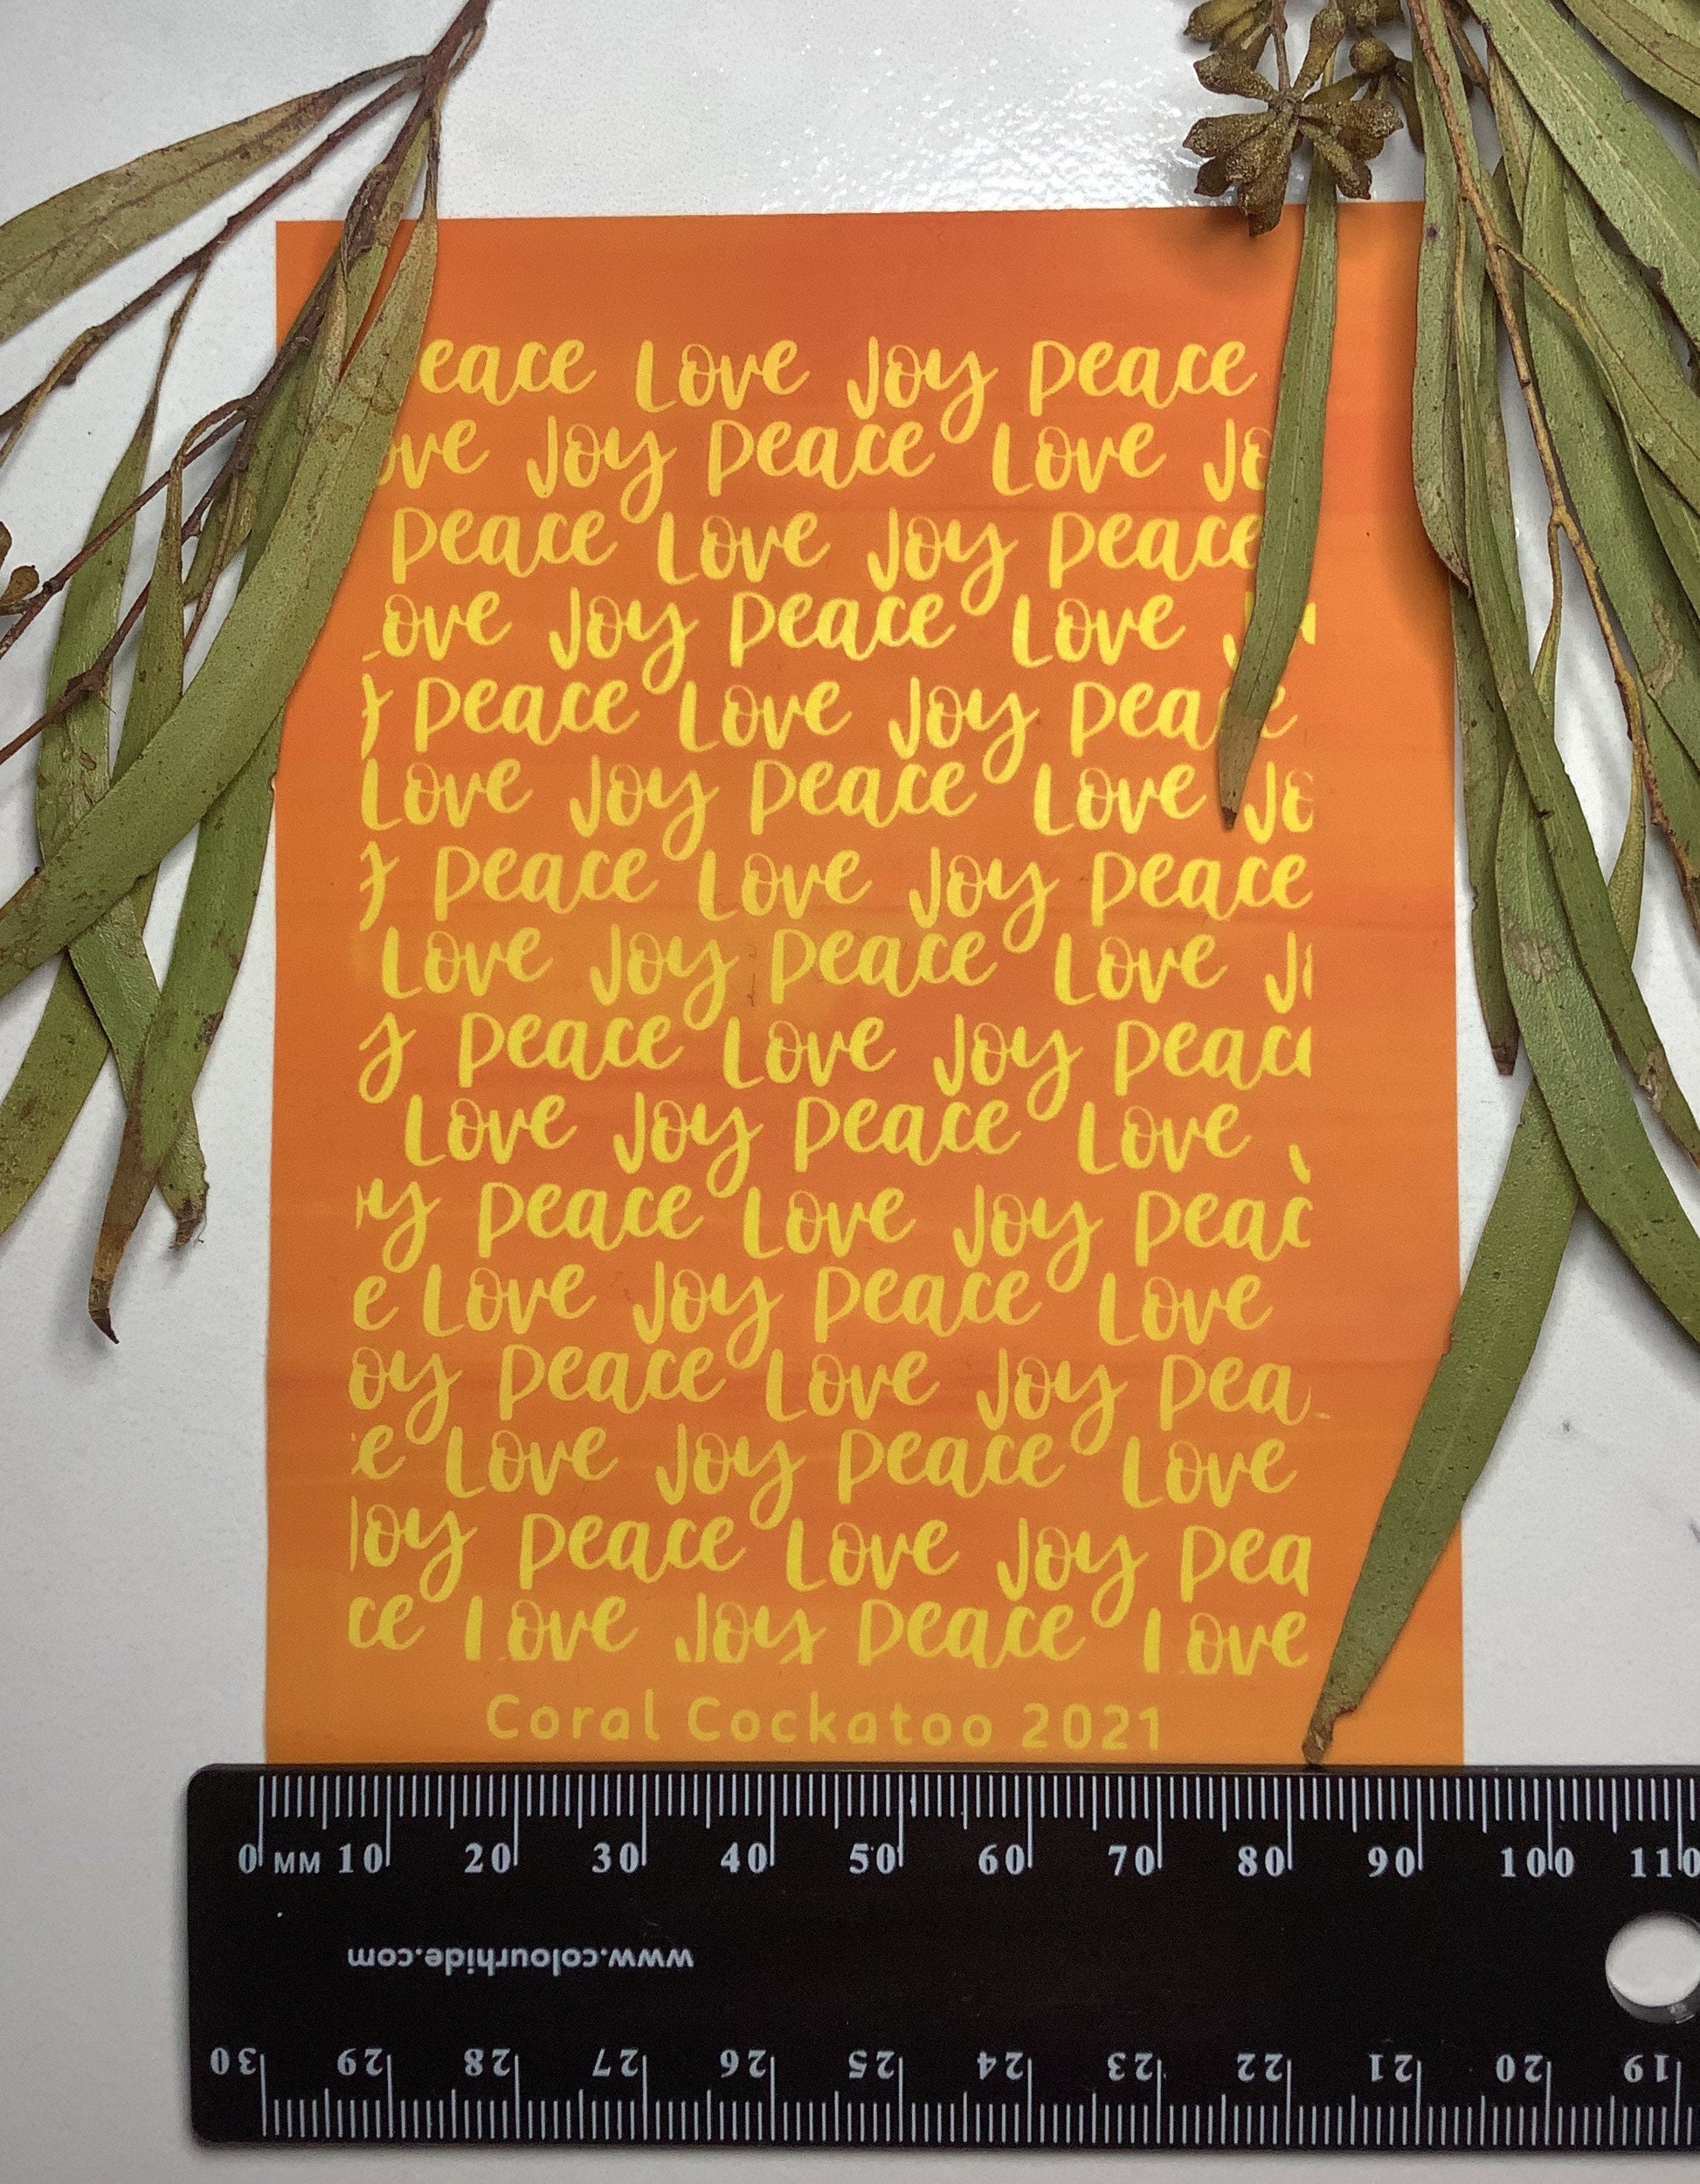 eace Love Joy Peace
ove Joy Peace Love Jo
Peace Love Joy Peace
Love Joy Peace Love J
y Peace Love Joy Peace
Love Joy Peace Love Jo
y Peace Love Joy Peace
Love Joy Peace Love J
y Peace Love Joy Peac
Love Joy Peace Love
y Peace Love Joy Peac
e Love Joy Peace Love
oy Peace Love Joy Pea
e Love Joy Peace Love
Joy Peace Love Joy Pea
ce Love Joy Peace Love
Coral Cockatoo 2021
0 MM 10 20 30 40 50 60 70 80 90 100 110
www.colourhide.com
30 29 28 27 26 25 24 23 22 21 20 19